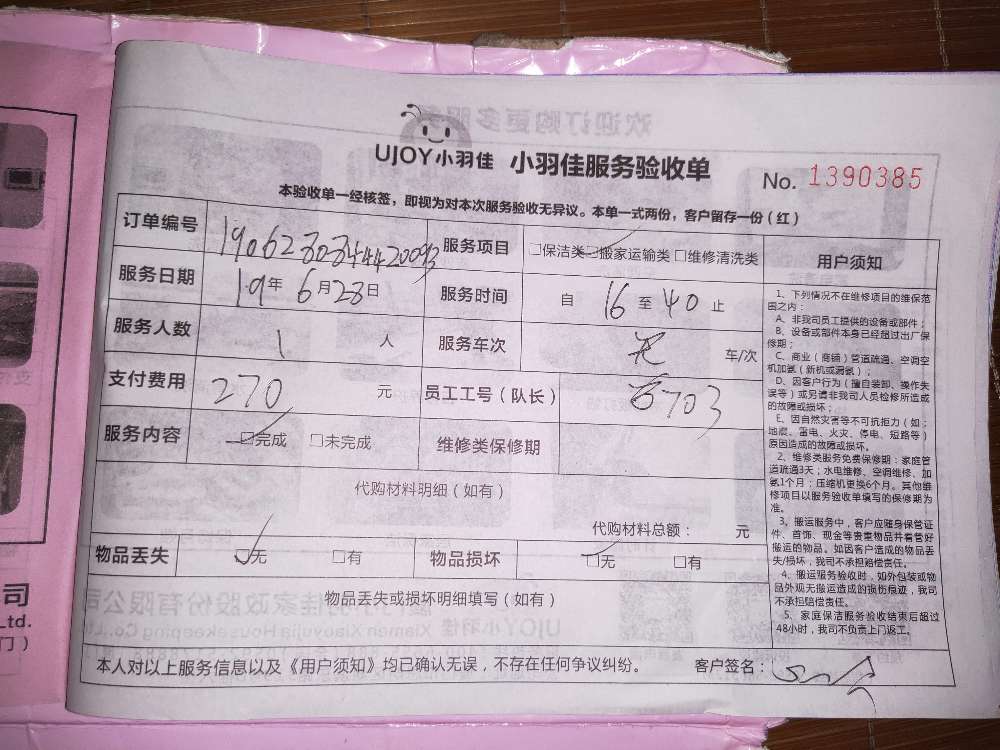 UJOY小羽佳 小羽佳服务验收单
No. 1390385
本验收单一经核签，即视为对本次服务验收无异议。本单一式两份，客户留存一份（红）
订单编号
服务项目 □保洁类 □搬家运输类 □维修清洗类
服务日期 19年 6月28日 服务时间 自 16 至 40 止
服务人数 1 人 服务车次 无 车/次
支付费用 270 元 员工工号（队长） 703
服务内容 □完成 □未完成 维修类保修期
代购材料明细（如有）
代购材料总额： 元
物品丢失 □无 □有 物品损坏 □无 □有
物品丢失或损坏明细填写（如有）
本人对以上服务信息以及《用户须知》均已确认无误，不存在任何争议纠纷。 客户签名：
用户须知
1、下列情况不在维修项目的维保范
围之内：
A、非我司员工提供的设备或部件；
B、设备或部件本身已经超过出厂保
修期；
C、商业（商铺）管道疏通、空调空
机加氨（新机或漏氨）；
D、因客户行为（擅自装卸、操作失
误等）或另请非我司人员检修所造成
的故障或损坏；
E、因自然灾害等不可抗拒力（如：
地震、雷电、火灾、停电、短路等）
原因造成的故障或损坏。
2、维修类服务免费保修期：家庭管
道疏通3天；水电维修、空调维修、加
氨1个月；压缩机更换6个月。其他维
修项目以服务验收单填写的保修期为
准。
3、搬运服务中，客户应随身保管证
件、首饰、现金等贵重物品并看管好
搬运的物品。如因客户造成的物品丢
失/损坏，我司不承担赔偿责任。
4、搬运服务验收时，如外包装或物
品外观无搬运造成的损伤痕迹，我司
不承担赔偿责任。
5、家庭保洁服务验收结束后超过
48小时，我司不负责上门返工。
司
Ltd.
门）